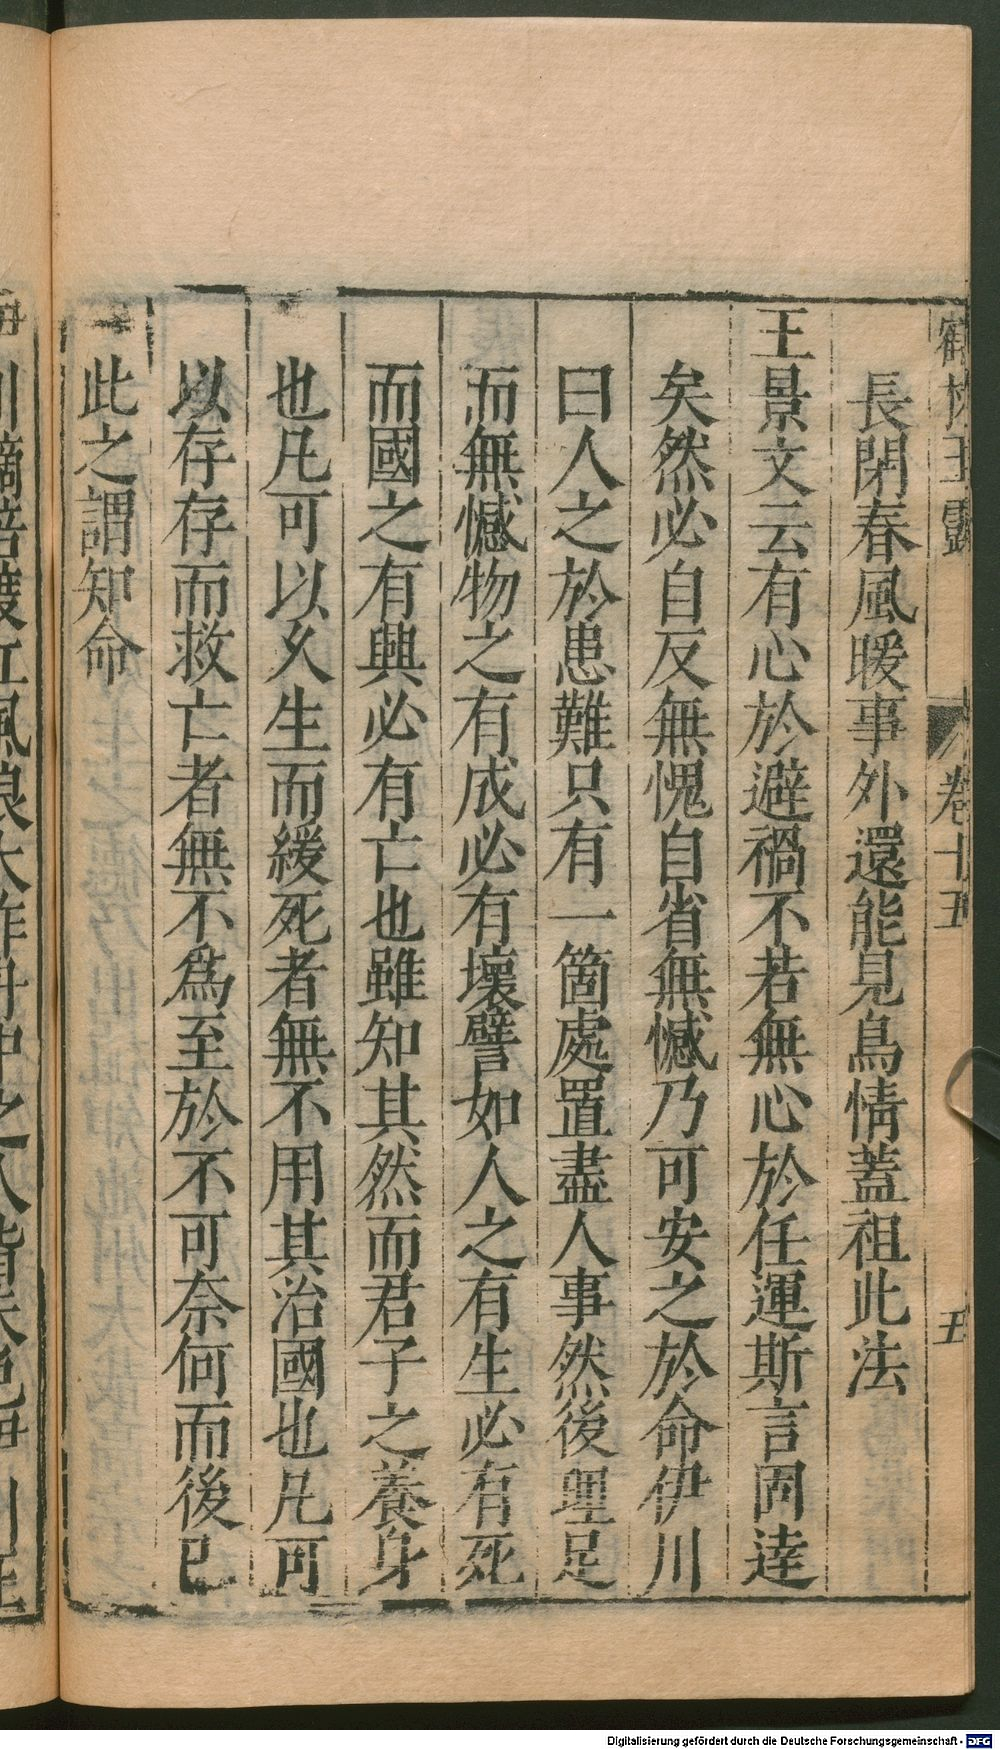 鶴林玉露
卷十五
五
長閑春風暖事外還能見鳥情蓋祖此法
王景文云有心於避禍不若無心於任運斯言固達
矣然必自反無愧自省無憾乃可安之於命伊川
曰人之於患難只有一箇處置盡人事然後理足
而無憾物之有成必有壞譬如人之有生必有死
而國之有興必有亡也雖知其然而君子之養身
也凡可以久生而緩死者無不用其治國也凡可
以存存而救亡者無不爲至於不可奈何而後已
此之謂知命
Digitalisierung gefördert durch die Deutsche Forschungsgemeinschaft - DFG